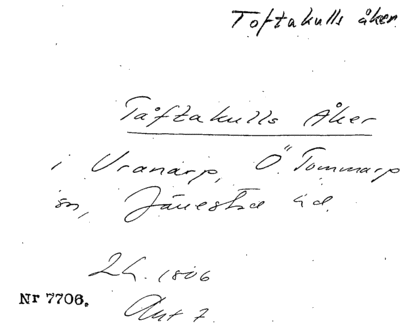 Toftakulls åker.
Tåftakulls Åker
i Vranarp, Ö. Tommarp
sn, Järrestad hd.
LH. 1806
Nr 7706.
Akt 7